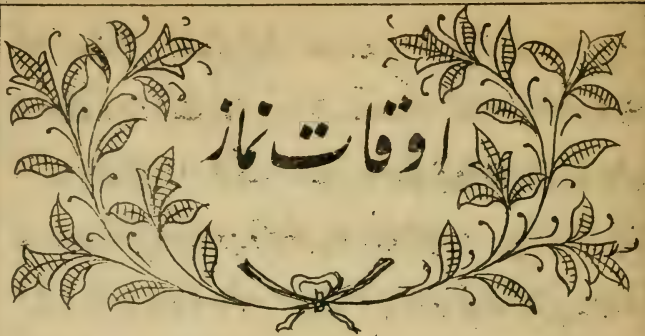 اوقات نماز